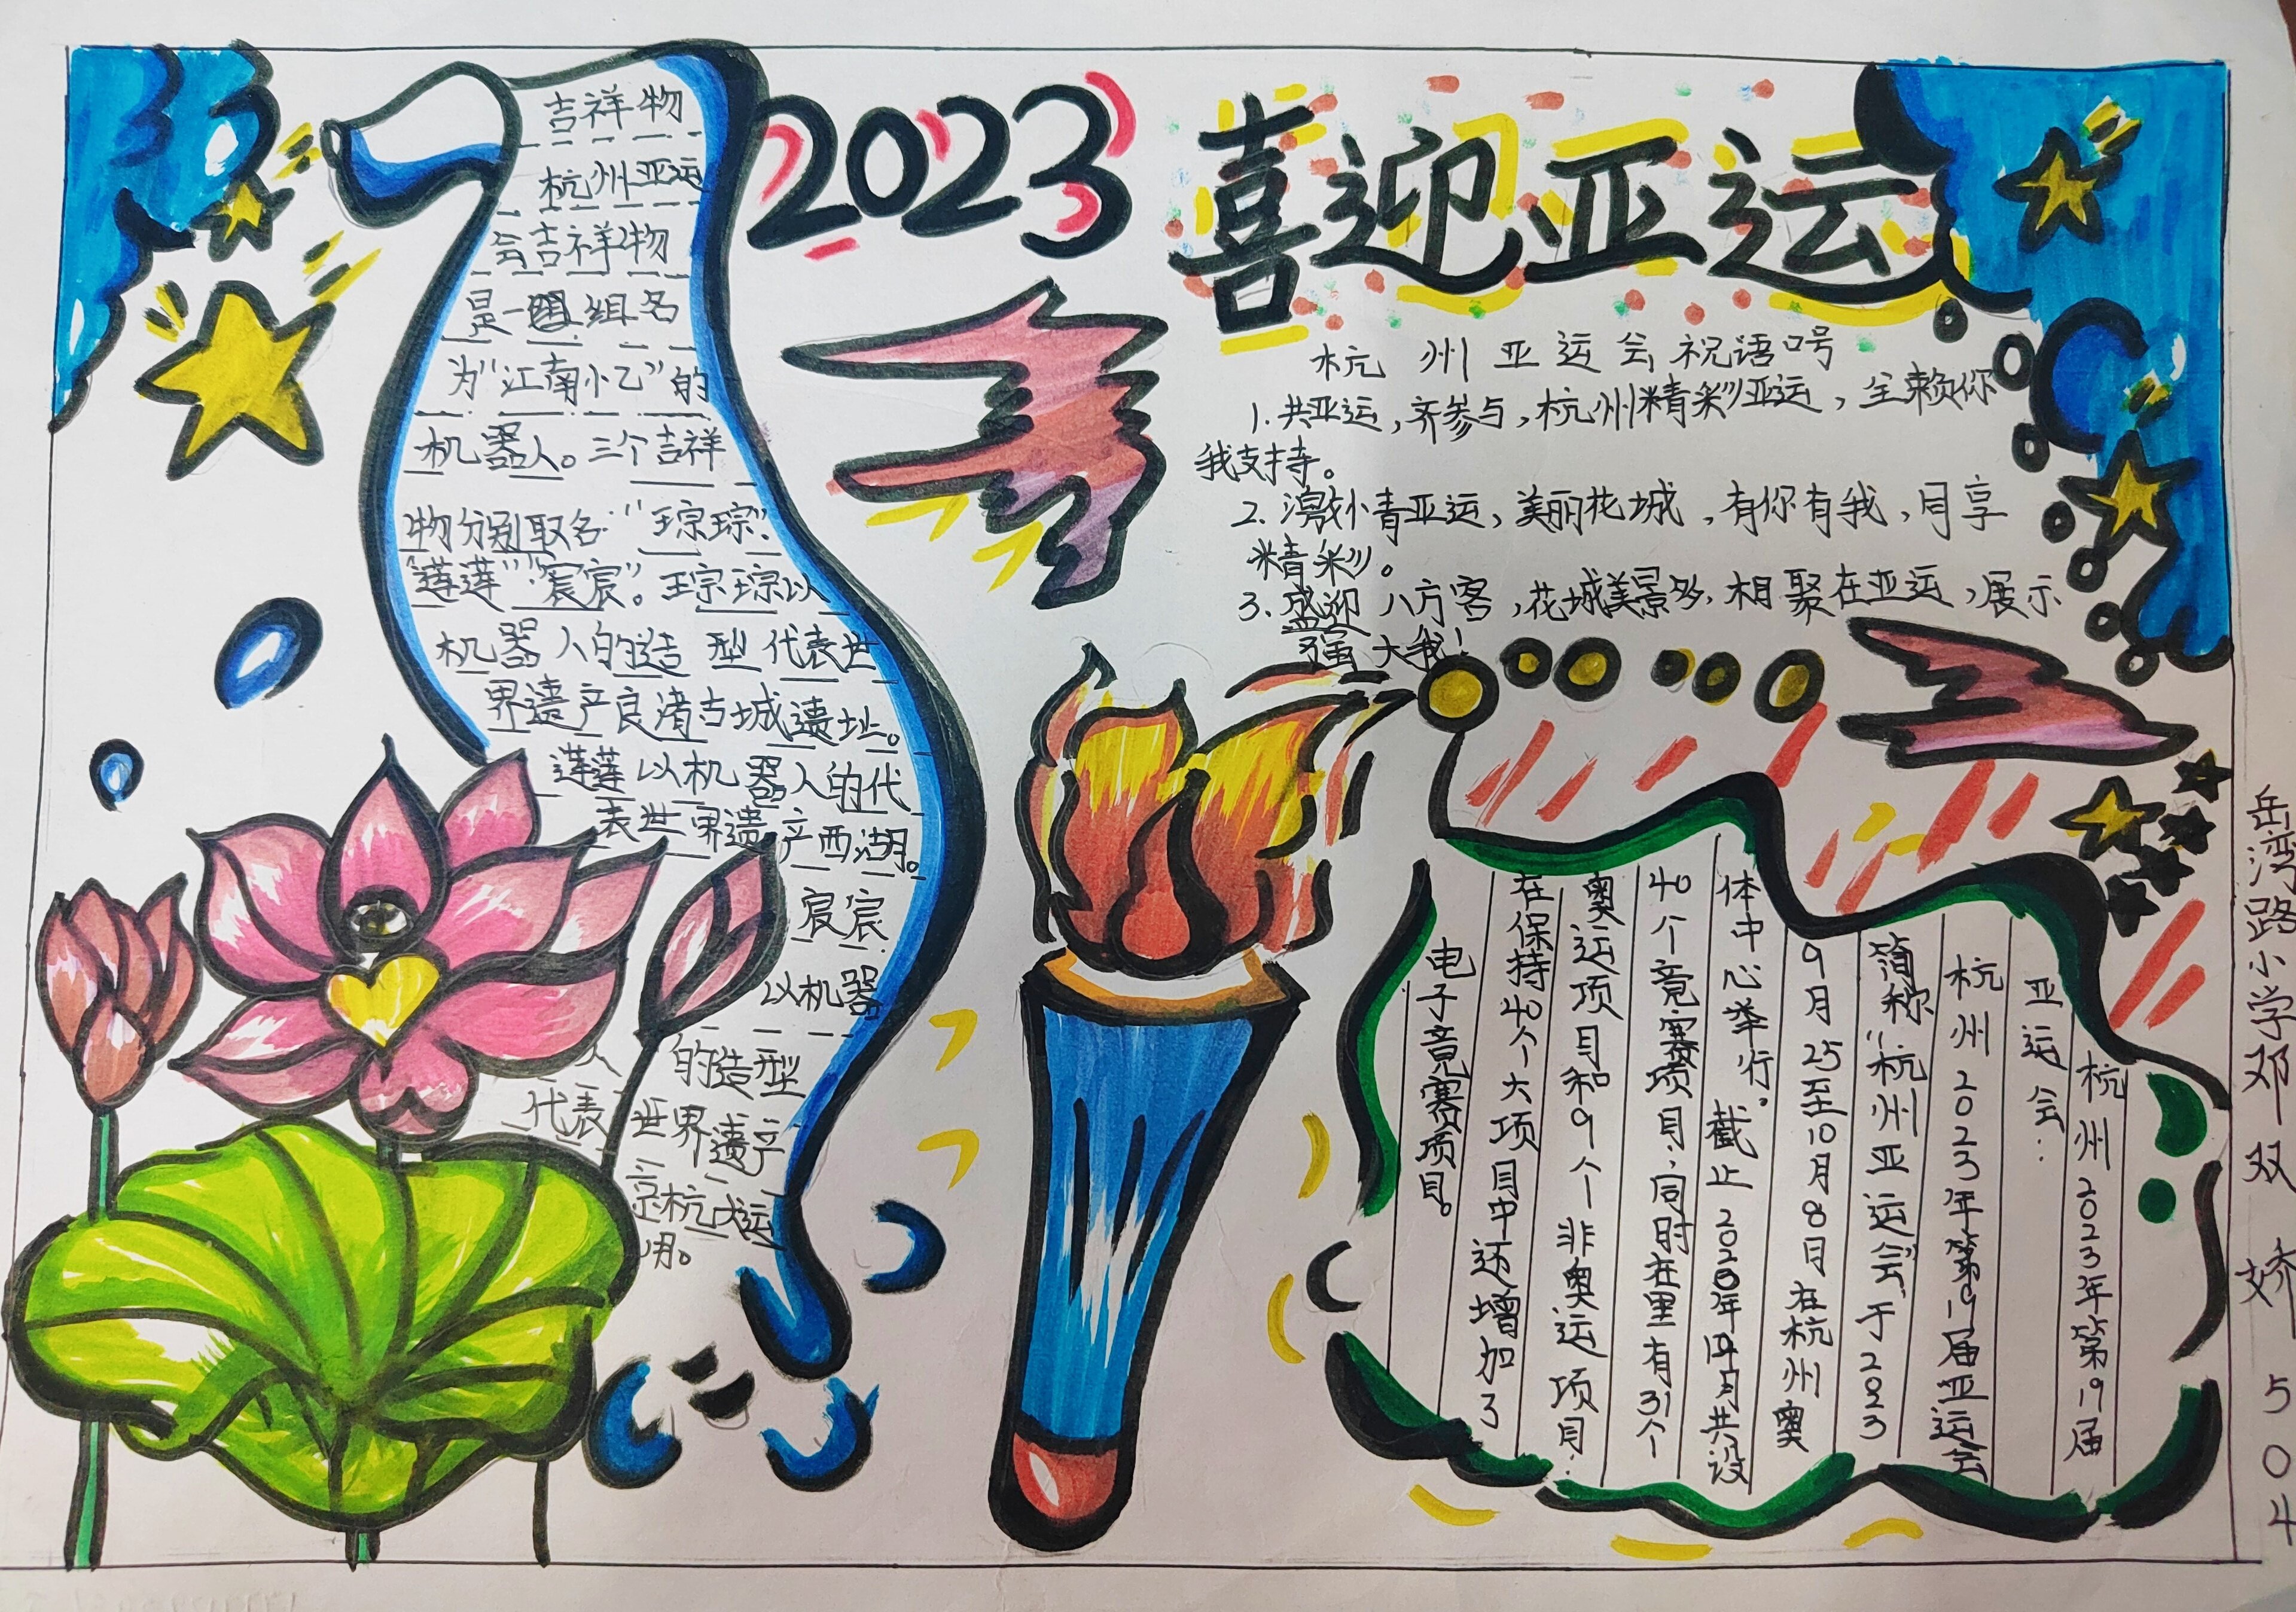 2023 喜迎亚运
吉祥物
杭州亚运
会吉祥物
是一组名
为“江南小乙”的
机器人。三个吉祥
物分别取名“琮琮”
“莲莲”“宸宸”。琮琮以
机器人的造型代表世
界遗产良渚古城遗址。
莲莲以机器人的代
表世界遗产西湖。
宸宸
以机器
人的造型
代表世界遗产
京杭大运
杭州亚运会祝语口号
1.共亚运,齐参与,杭州精彩亚运,全赖你
我支持。
2.激情亚运,美丽花城,有你有我,同享
精彩。
3.盛迎八方客,花城美景多,相聚在亚运,展示
强大我!
杭州2023年第19届
亚运会:
杭州2023年第19届亚运会
简称“杭州亚运会”于2023
9月25至10月8日在杭州奥
体中心举行。截止2020年12月共设
40个竞赛项目,同时在里有31个
奥运项目和9个非奥运项目.
在保持40个大项目中还增加了
电子竞赛项目。
岳湾路小学邓双娇504